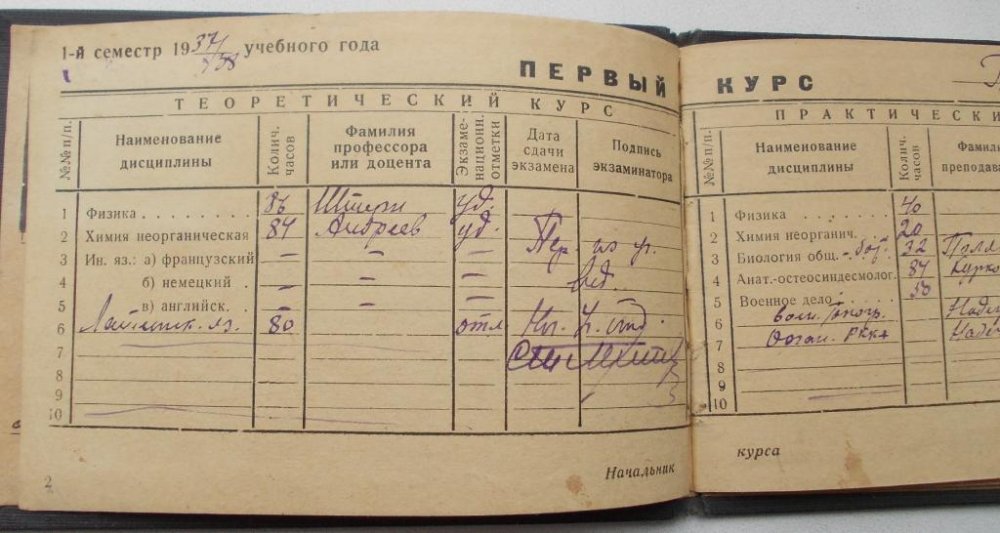 1-й семестр 1937/38 учебного года
ПЕРВЫЙ
ТЕОРЕТИЧЕСКИЙ КУРС
№№ п/п. Наименование дисциплины Колич. часов Фамилия профессора или доцента Экзаменационн. отметки Дата сдачи экзамена Подпись экзаминатора
1 Физика уд.
2 Химия неорганическая 84 Андреев уд. Пер. из уч.
3 Ин. яз.: а) французский — — — вед.
4 б) немецкий — — —
5 в) английск. — — —
6 Латинск. яз. 80 отл
7
8
9
10
Начальник
2
КУРС
ПРАКТИЧЕСКИ
№№ п/п. Наименование дисциплины Колич. часов Фамил преподава
1 Физика 40
2 Химия неорганич. 20
3 Биология общ. - бот. 32
4 Анат.-остеосиндесмолог. 84
5 Военное дело
6
7 Орган. РККА
8
9
10
курса